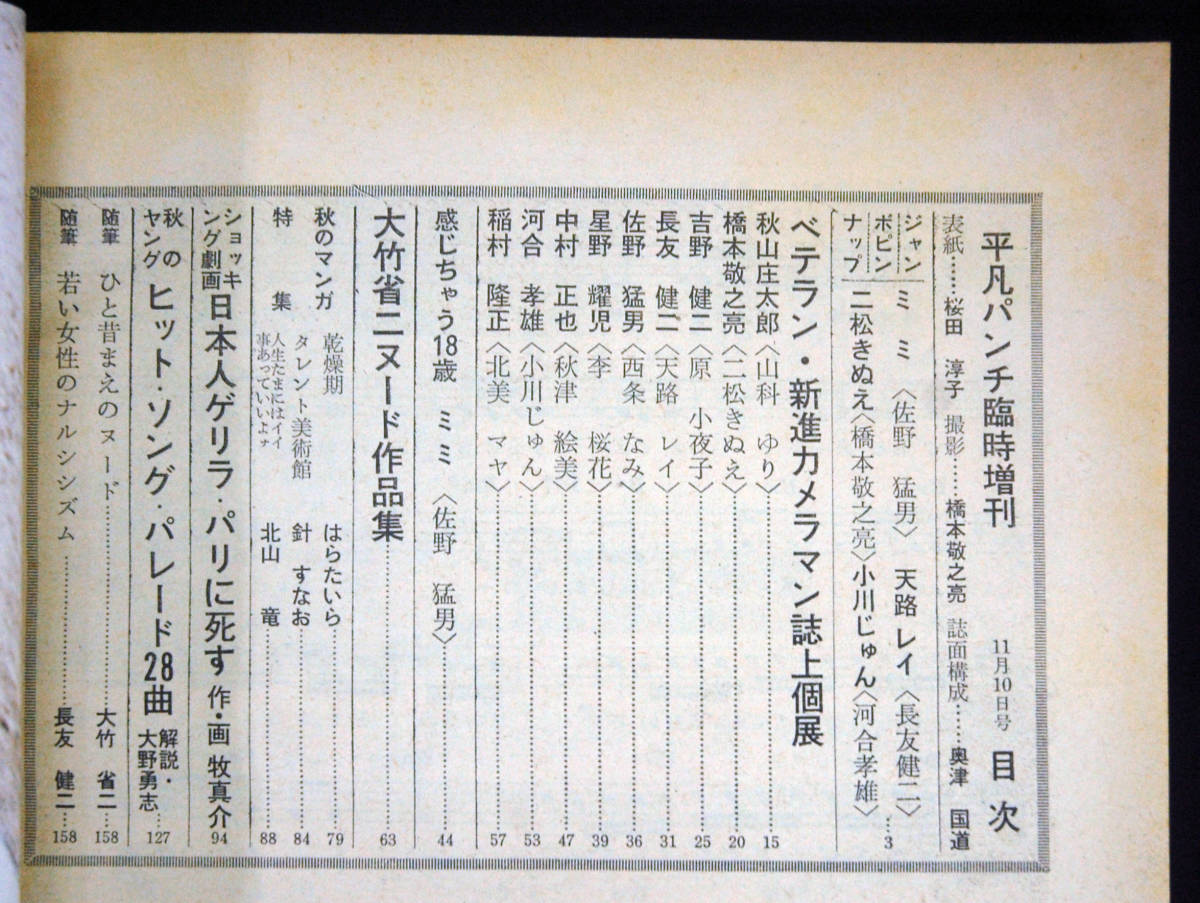 平凡パンチ臨時増刊 11月10日号 目次
表紙……桜田 淳子 撮影……橋本敬之亮 誌面構成……奥津 国道
ジャンボピンナップ
ミミ〈佐野 猛男〉 天路レイ〈長友健二〉
二松きぬえ〈橋本敬之亮〉小川じゅん〈河合孝雄〉…3
ベテラン・新進カメラマン誌上個展
秋山庄太郎〈山科 ゆり〉……15
橋本敬之亮〈二松きぬえ〉……20
吉野 健二〈原 小夜子〉……25
長友 健二〈天路 レイ〉……31
佐野 猛男〈西条 なみ〉……36
星野 耀児〈李 桜花〉……39
中村 正也〈秋津 絵美〉……47
河合 孝雄〈小川じゅん〉……53
稲村 隆正〈北美 マヤ〉……57
感じちゃう18歳 ミミ〈佐野 猛男〉……44
大竹省二ヌード作品集……63
秋のマンガ特集
乾燥期 はらたいら……79
タレント美術館 針 すなお……84
人生たまにはイイ事あっていいよナ 北山 竜……88
ショッキング劇画 日本人ゲリラ・パリに死す 作・画 牧真介 94
秋のヤング ヒット・ソング・パレード28曲 解説・大野勇志…127
随筆 ひと昔まえのヌード……大竹 省二…158
随筆 若い女性のナルシシズム……長友 健二…158